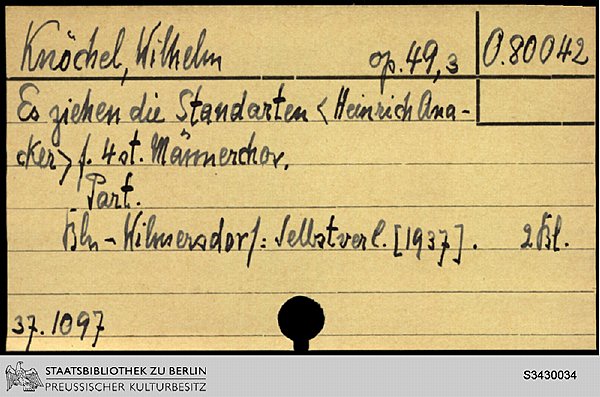 Knöchel, Wilhelm op. 49,3 O.80042
Es ziehen die Standarten < Heinrich Ana-
cker > f. 4st. Männerchor.
Part.
Bln-Wilmersdorf: Selbstverl. [1937]. 2 Bl.
37.1097
STAATSBIBLIOTHEK ZU BERLIN
PREUSSISCHER KULTURBESITZ
S3430034